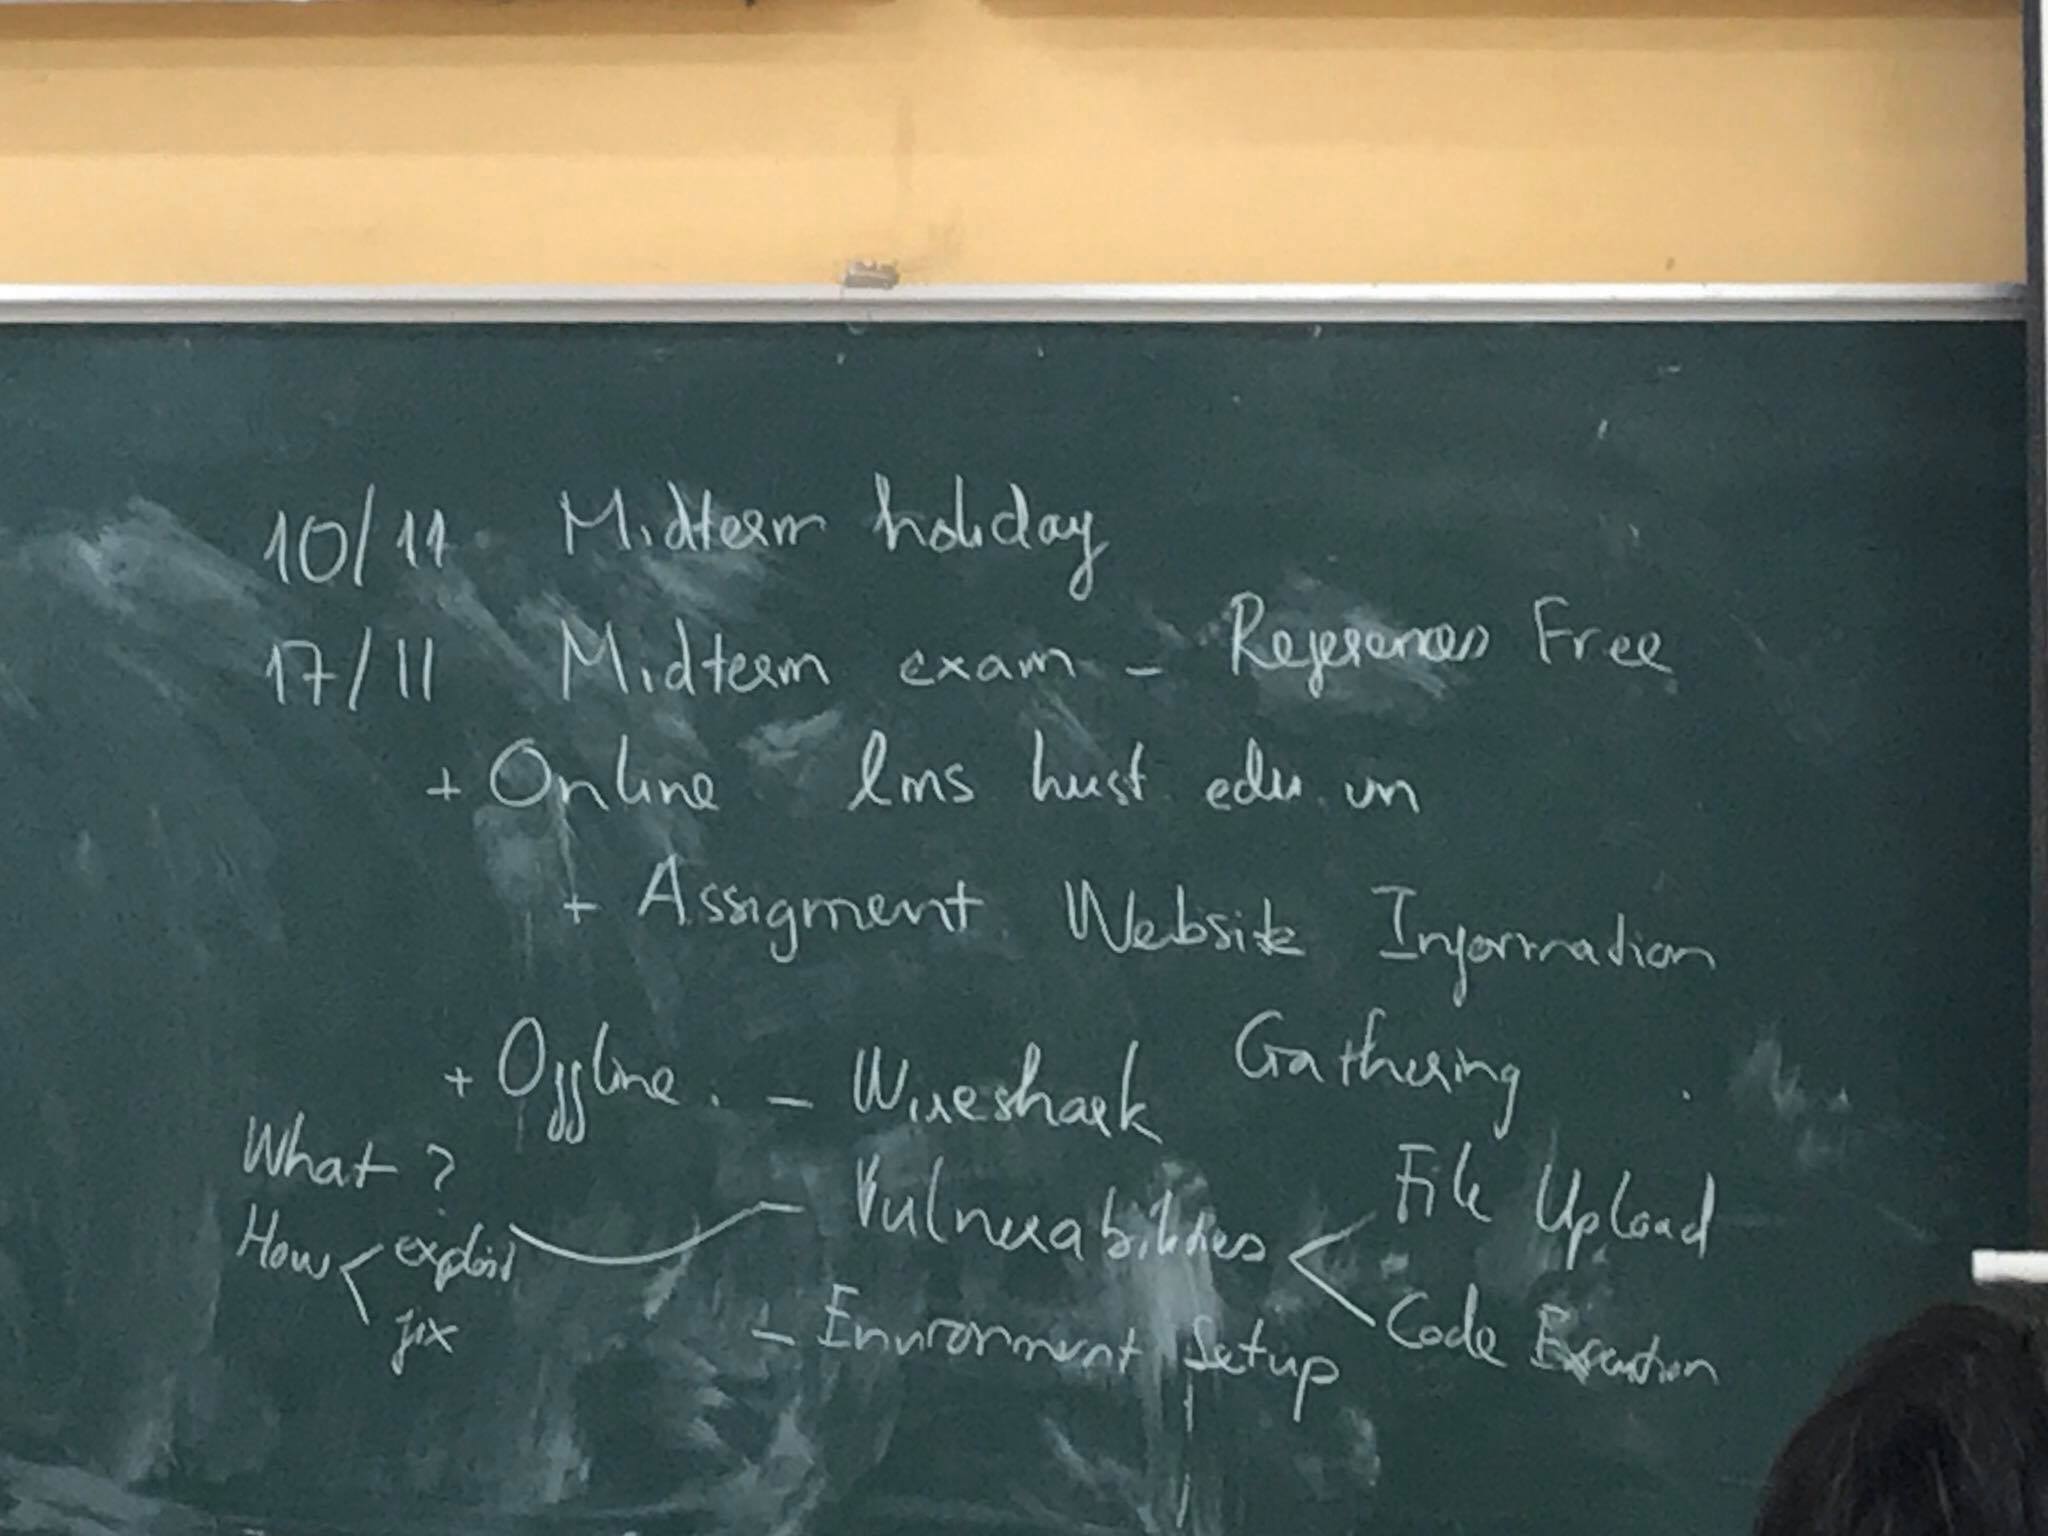 10/11 Midterm holiday
17/11 Midterm exam - References Free
+ Online lms. hust. edu. vn
+ Assigment Website Information
Gathering
+ Offline. - Wireshark
What?
How < exploit
fix
- Vulnerabilities < File Upload
Code Execution
- Environment Setup